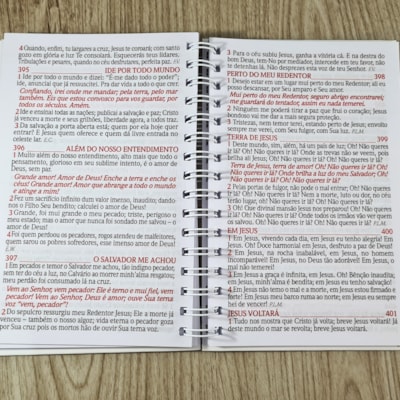 4 Quando, enfim, tu largares a cruz, Jesus te coroará; com santo
gozo em glória e luz Te consolará. Esquecerás teus lidares:
Tribulações e pesares, quando no céu desfrutares, perfeita paz.
395 IDE POR TODO MUNDO
1 Ide por todo o mundo e dizei: "É-me dado todo o poder";
ide, anunciai que já ressuscitei. Pra dar vida a todo o que crer.
Confiando, irei onde me mandar; pela terra, pelo mar
também. Eis que estou convosco para vos guardar, por
todos os séculos. Amém.
2 Ide e ensinai todas as nações; publicai a salvação e paz; Cristo
já venceu a morte e seus grilhões, liberdade agora, a todos traz.
3 Da salvação a porta aberta está; quem por ela hoje quer
entrar? E Jesus quem oferece e quem dá livre entrada no
celeste lar.
396 ALÉM DO NOSSO ENTENDIMENTO
1 Muito além do nosso entendimento, alto mais que todo o
pensamento, glorioso em seu sublime intento, é o amor de
Deus, sem par.
Grande amor! Amor de Deus! Enche a terra e enche os
céus! Grande amor! Amor que abrange a todo o mundo
e atinge a mim!
2 Fez um sacrifício infindo dum valor imenso, inaudito; dando-
nos o Filho Seu bendito; calculai o amor de Deus!
3 Grande, foi mui grande o meu pecado; triste, perigoso o
meu estado; mas o amor que nunca foi sondado me salvou – o
amor de Deus!
4 Foi quem perdoou os pecadores, rogos atendeu de malfeitores,
quem sarou os pobres sofredores, esse imenso amor de Deus!
397 O SALVADOR ME ACHOU
1 Em pecados e temor o Salvador me achou, tão indigno pecador,
sem ter do céu a luz, no Calvário ao morrer minh'alma resgatou; meu
perdão foi consumado lá na cruz.
Vem ao Senhor, vem pecador: Ele é terno e mui fiel, vem
pecador! Vem ao Senhor, Deus é amor; ouve Sua terna
voz: "vem, pecador"!
2 Do sepulcro ressurgiu meu Redentor Jesus; Ele a morte já
venceu – também o nosso algoz; vida eterna o pecador goza
por Sua cruz pois os mortos hão de ouvir Sua terna voz.
3 Para o céu subiu Jesus, ganhou a vitória cá. E na destra do
bom Deus, tem-No por mediador, intercede em teu favor, não
te detenhas lá. Não desprezes esta voz de teu Senhor.
PERTO DO MEU REDENTOR 398
1 Desejo estar em um lugar mui perto do meu Redentor; ali eu
posso descansar, por Seu amparo e Seu amor.
Mui perto do meu Redentor, seguro abrigo encontrarei;
me guardará do tentador, assim eu nada temerei.
2 Ninguém me poderá tirar a paz que frui o coração; Jesus,
bondoso vai me dar a mais segura proteção.
3 Tristezas, nem temor senti, estando perto de Jesus; envidio
sempre me verei, com Seu fulgor, com Sua luz.
TERRA DE JESUS 399
1 Deste mundo, sim, além, há um país de luz; Oh! Não Queres
ir lá? Oh! Não queres ir lá? Onde se verá, por entre veis, pois
brilha ali Jesus; Oh! Não queres ir lá? Oh! Não queres ir lá?
Terra de Jesus, terra de amor! Oh! Não queres ir lá? Oh!
Não queres ir lá? Onde brilha a luz do meu Salvador; Oh!
Não queres ir lá? Oh! Não queres ir lá?
2 Pelas portas de fulgor, não pode o mal entrar; Oh! Não queres
ir lá? Oh! Não queres ir lá? Nem a morte, luto ou dor, no céu
terão lugar. Oh! Não queres ir lá? Oh! Não queres ir lá?
3 Oh! Que divinal mansão Jesus nos preparou! Oh! Não Queres
ir lá? Oh! Não queres ir lá? Onde todos os irmãos vão ver quem
os salvou. Oh! Não queres ir lá? Oh! Não queres ir lá?
EM JESUS 400
1 Em Jesus, vivendo cada dia, em Jesus eu tenho alegria! Em
Jesus, oh! Doce harmonia! em Jesus, desfruto a paz de Deus!
2 Em Jesus, na rocha inabalável, em Jesus, no homem
incomparável! Em Jesus, no Deus tão adorável! Em Jesus, o
mal não temerei!
3 Em Jesus a graça é infinita, em Jesus. Oh! Bênção inaudita;
em Jesus, minh'alma é bendita; em Jesus eu tenho salvação!
4 Em Jesus não temo o mal e a morte, em Jesus estou firmado e
forte! Em Jesus meu barco ruma ao norte; em Jesus eu sempre
hei de estar!
JESUS VOLTARÁ 401
1 Tudo nos mostra que Cristo já volta; breve Jesus voltará! Já
deste mundo o mar se revolta; breve Jesus voltará.